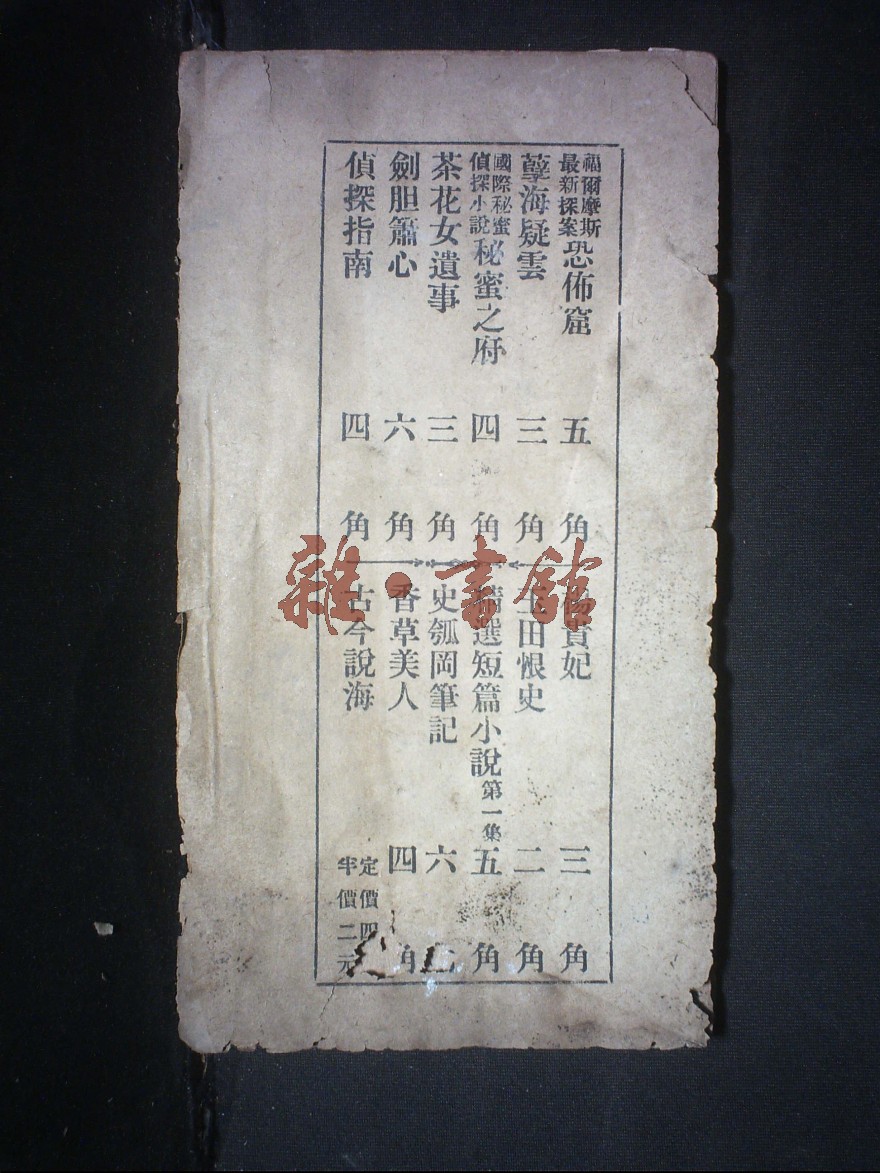 福爾摩斯
最新探案
恐佈窟 五角
孽海疑雲 三角
國際秘蜜
偵探小說
秘蜜之府 四角
茶花女遺事 三角
劍胆簫心 六角
偵探指南 四角
貴妃 三角
玉田恨史 二角
精選短篇小說第一集 五角
史瓠岡筆記 六
香草美人 四角
古今說海
定價四
半價二元
雜·書館